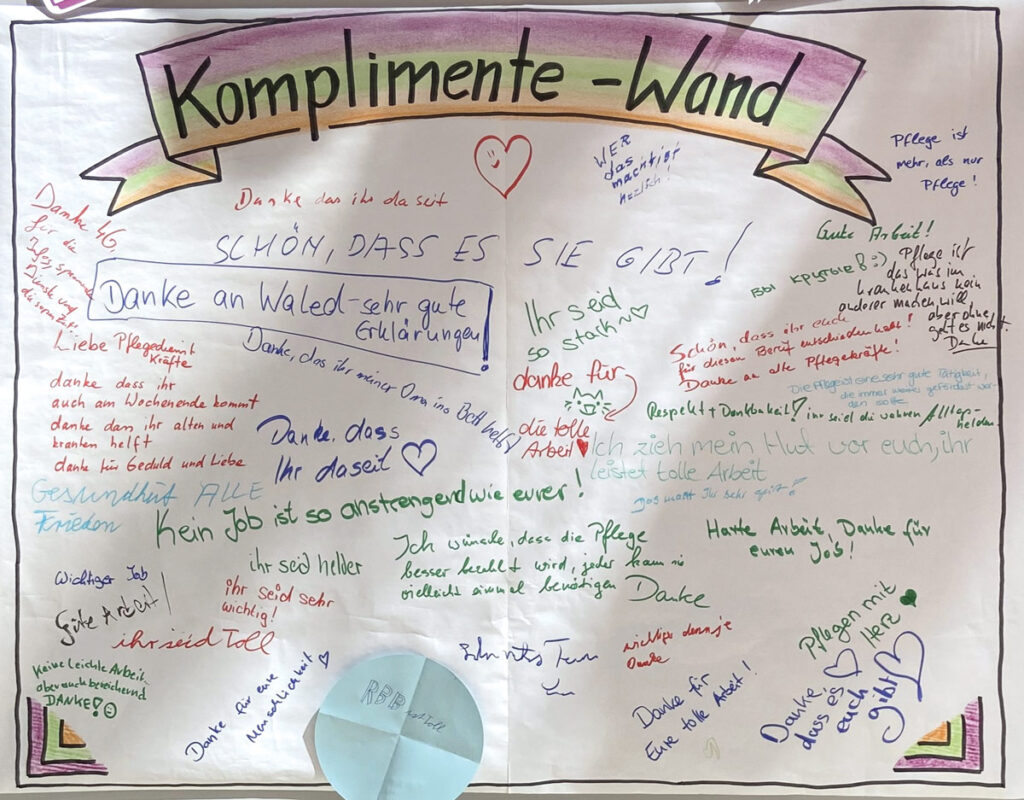 Komplimente-Wand
WER
das
machtigt
herzlich!
Pflege ist
mehr, als nur
Pflege!
Danke das ihr da seit
Danke 4G
für die
Dienste und
SCHÖN, DASS ES SIE GIBT!
Gute Arbeit!
Вы крутые! :)
Pflege ist
das was im
krankenhaus kein
anderer machen will,
aber ohne,
geht es nicht.
Danke
Danke an Waled-sehr gute
Erklärungen!
Ihr seid
so stark~♡
Schön, dass ihr euch
für diesen Beruf entschieden habt!
Danke an alle Pflegekräfte!
Liebe Pflegedienst
Kräfte
danke dass ihr
auch am Wochenende kommt
danke das ihr alten und
kranken helft
danke für Geduld und Liebe
Danke, das ihr meiner Oma ins Bett helft!
danke für
die tolle
Arbeit
Die Pflege ist eine sehr gute Tätigkeit,
die immer weiter gefördert wer-
den sollte
Respekt + Dankbarkeit!
ihr seid die wahren Alltags-
helden
Danke, dass
Ihr da seit ♡
Ich zieh mein Hut vor euch, ihr
leistet tolle Arbeit
Das macht Ihr sehr gut!
Gesundheit ALLE
Frieden
Kein Job ist so anstrengend wie eurer!
Harte Arbeit, Danke für
euren Job!
ihr seid helder
Ich würde, dass die Pflege
besser bezahlt wird, jeder kann sie
vielleicht einmal benötigen
Danke
Wichtiger Job
Gute Arbeit!
ihr seid sehr
wichtig!
ihr seid Toll
wichtiger denn je
Danke
Pflegen mit
Herz
Keine leichte Arbeit
aber auch bereichernd
DANKE!
Danke für eure
Menschlichkeit ♡
RBB
ist toll
Danke für
Eure tolle Arbeit!
Danke,
dass es
euch
gibt